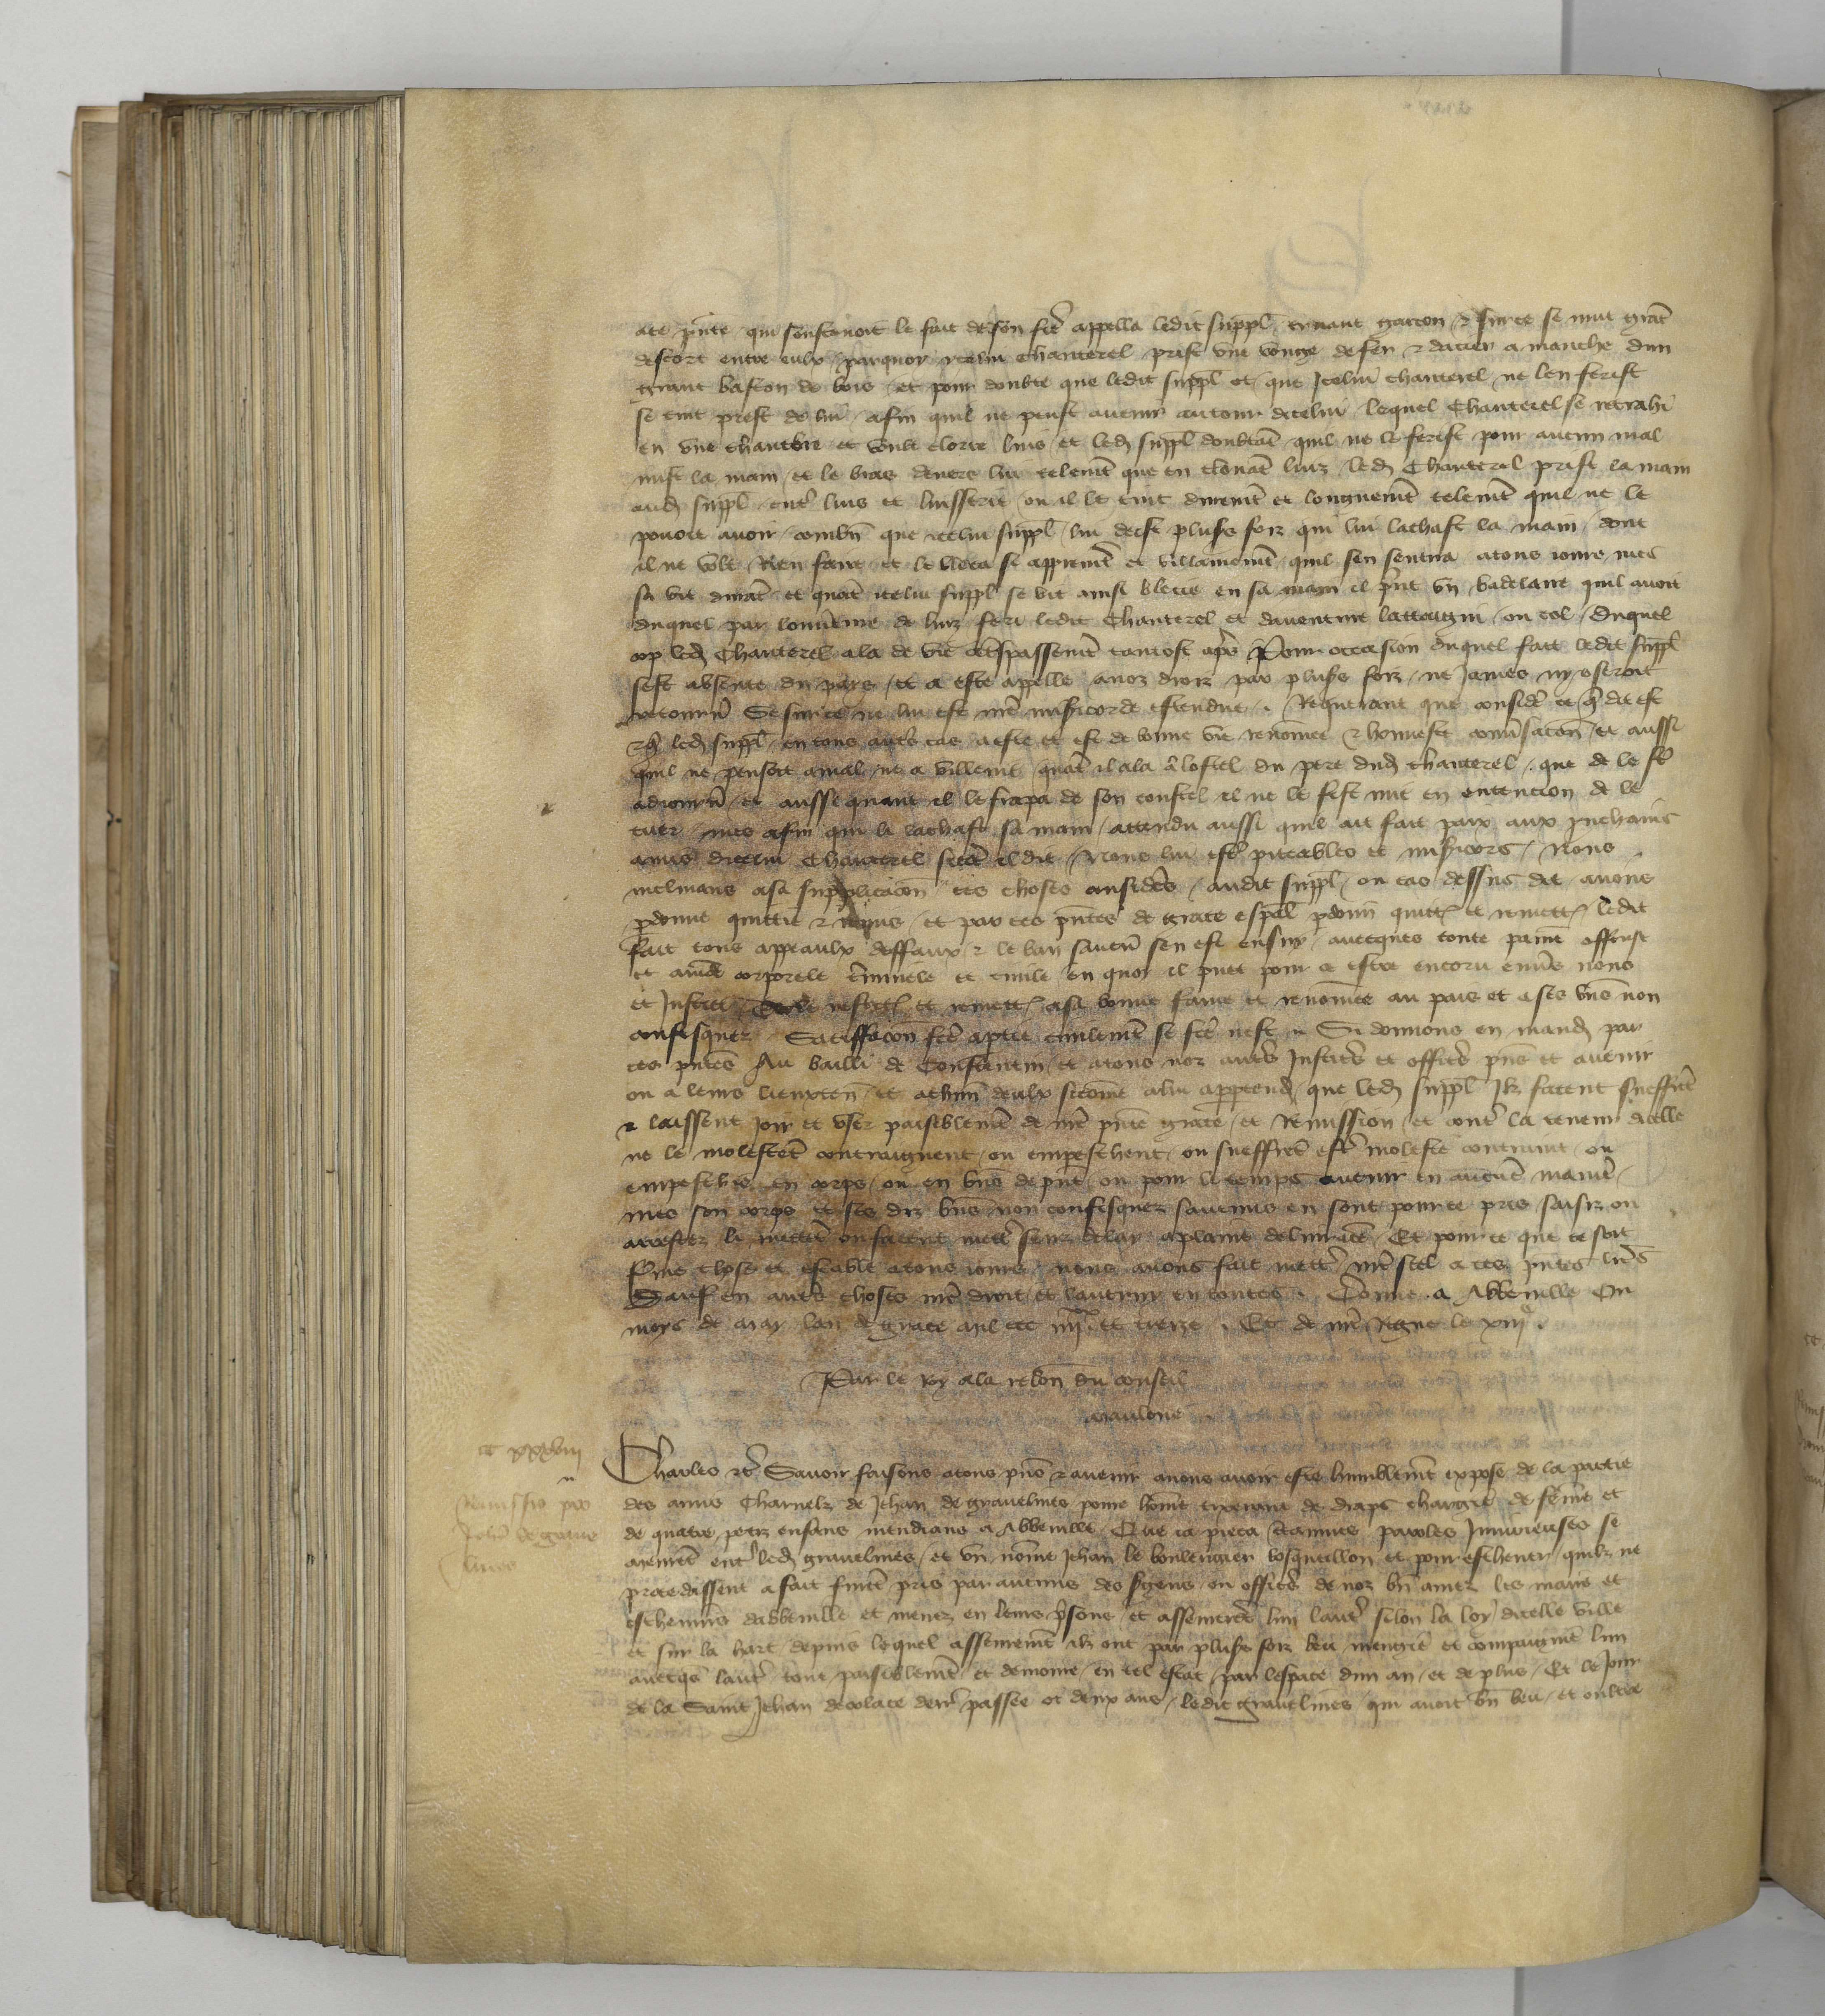 ace pñte qui soustenoit le fait de son fre appella ledit suppl truant garcon / & sur ce se mut grãt
descort entre eulx / parquoy icelui Chanterel prist une vouge de fer & dacier a manche dun
grant baston de bois / et pour doubte que ledit suppl ot que Icelui Chanterel ne len ferist
se tint prest de lui / afin quil ne peust avenir autour dicelui / lequel Chanterel se retrahi
en une chambre et voult clorre luis / et led suppl doubtãt quil ne le ferist pour aucun mal
mist la main / et le bras devers lui telemt que en clouãt luis / led Chanterel prist la main
aud suppl / entre luis et luisserie / ou il le tint durement et longuement telemt quil ne le
povoit avoir / combñ que icelui suppl lui deist pluss foiz qui lui lachast la main / dont
il ne volt Rien faire et le bleca si apprement et villainemt quil sen sentira a tous iours mes
sa vie durãt / et quãt icelui suppl se vit ainsi blecie en sa main il print un badelaire quil avoit
duquel par louverture de luis feri ledit Chanterel et daventure lattaigni / ou col / duquel
cop led Chanterel ala de vie a trespassemt tantost apres Pour occasion duquel fait ledit suppl
sest absente du pais / et a este appelle a noz droiz par pluss foiz / ne James ny oseroit
retourner Se sur ce ne lui est nre misericorde estendue . Requerant que consideré ce q dit est
& q led suppl / en tous autres cas a este et est de bonne vie renomee & honneste conversacon / et aussi
quil ne pensoit a mal / ne a villenie quãt il ala a lostel du pere dud Chanterel / que de le fe
adiourner / et aussi quant il le frapa de son coustel il ne le fist mie en entencion de le
tuer / mes afin quil li lachast sa main / attendu aussi quil ait fait paix aux prochains
amis dicelui Chanterel sicõe il dit / Nous lui estre piteables et misericors / Nous
inclinans a sa supplicacon ces choses considerees / audit suppl / ou cas dessus dit avons
pdonne quittie & remis / et par ces pñtes de grace espal pdonn quitt et remett ledit
fait tous appeaulx deffaux & le ban saucun sen est ensuy / avecques toute paine offense
et amende corporele criminele et civile en quoy il puet pour ce estre encoru envers nous
et Justice et le restit et remett a sa bonne fame et renomee au pais et a ses biens non
confisquez Satisffacon fte a ptie civilemt se fte nest Si donnons en mand par
ces pñtes Au bailli de Constentin / et a tous noz autres Justiciers et officiers pñs et avenir
ou a leurs lieuxten et a chun deulx sicomme a lui appartend que led suppl Ilz facent sueffret
& laissent joir et user paisiblement de nre pñte grace et Remission et contre la teneur dicelle
ne le molestent contraignent / ou empeschent / ou sueffrent estre moleste contraint / ou
empeschie en corps / ou en biens de pñt / ou pour le temps avenir en aucune maniere /
mes son corps et ses diz biens non confisquez saucuns en sont pour ce pris / saisiz ou
arrestez li mettent ou facent mettre sans delay a plaine delivrance Et pour ce que ce soit
ferme chose et estable a tous iours nous avons fait mettre nre scel a ces pñtes lres
Sauf en autres choses nre droit et lautruy en toutes . Donne a Abbeville Ou
moys de may lan de grace mil ccc iiiixx et treze . Et de nre Regne le xiiie .
Par le Roy a la relon du conseil
Maulone
cc xxxviii
Remissio pro
Johe de grave
lines
Charles etc Savoir faisons a tous pñs & avenir a nous avoir este humblemt expose de la partie
des amis Charnelz de Jehan de gravelines povre home tixerant de draps chargie de feme et
de quatre petiz enfans mendians a Abbeville Que ia pieca certaines paroles Iniurieuses se
murent entre led gravelines / et un nomme Jehan le boulengier bosquillon et pour eschever quilz ne
procedissent a fait furent pris par aucuns des sergens / ou officiers de noz biens amez les maire et
eschevins dabbeville et menez en leurs prisons / et asseurerent lun lautre selon la loy dicelle ville
et sur la hart / depuis lequel asseurement ilz ont par pluss foiz beu mengie et compaignie lun
avecqs lautre tout paisiblement et demoure en tel estat / par lespace dun an / et de plus / Et le Jour
de la Saint Jehan decolace derr passee ot deux ans / ledit gravelines qui avoit bn beu / et oultre